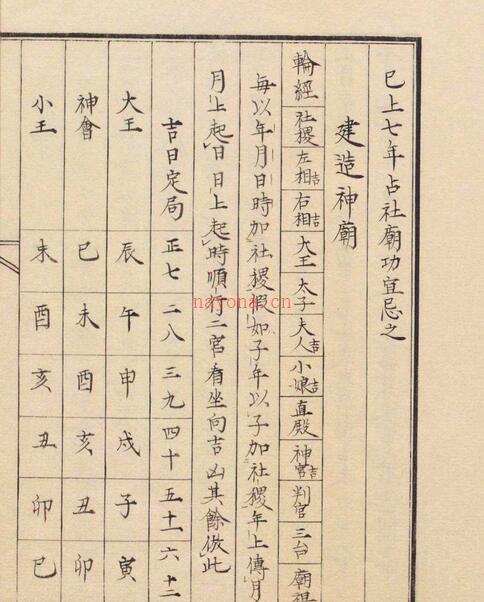 已上七年占社廟功宜忌之
建造神廟
輪經 社稷 左相吉 右相吉 大王 太子 夫人吉 小娘吉 直殿 神宮吉 判官 三台 廟
每以年月日時加社稷假如子年以子加社稷年上傳月
月上起日日上起時順行二宮看坐向吉凶其餘倣此
吉日定局 正七 二八 三九 四十 五十一 六十二
大王 辰 午 申 戌 子 寅
神會 巳 未 酉 亥 丑 卯
小王 未 酉 亥 丑 卯 巳
nayona.cn